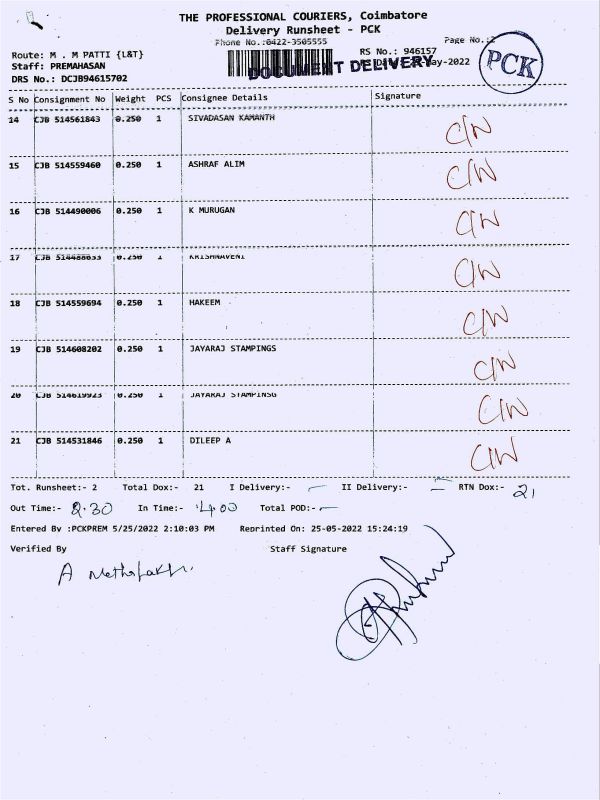 THE PROFESSIONAL COURIERS, Coimbatore
Delivery Runsheet - PCK
Phone No.:0422-3505555
Page No.:2
Route: M . M PATTI {L&T}
RS No.: 946157
Staff: PREMAHASAN
DOCUMENT DELIVERY
-2022
PCK
DRS No.: DCJB94615702
S No Consignment No Weight PCS Consignee Details Signature
14 CJB 514561843 0.250 1 SIVADASAN KAMANTH C/N
15 CJB 514559460 0.250 1 ASHRAF ALIM C/N
16 CJB 514490006 0.250 1 K MURUGAN C/N
17 CJB 514488633 0.250 1 KRISHNAVENI C/N
18 CJB 514559694 0.250 1 HAKEEM C/N
19 CJB 514608202 0.250 1 JAYARAJ STAMPINGS C/N
20 CJB 514619923 0.250 1 JAYARAJ STAMPINSG C/N
21 CJB 514531846 0.250 1 DILEEP A C/N
Tot. Runsheet:- 2 Total Dox:- 21 I Delivery:- — II Delivery:- — RTN Dox:- 21
Out Time:- 2.30 In Time:- 4.00 Total POD:- —
Entered By :PCKPREM 5/25/2022 2:10:03 PM Reprinted On: 25-05-2022 15:24:19
Verified By Staff Signature
A